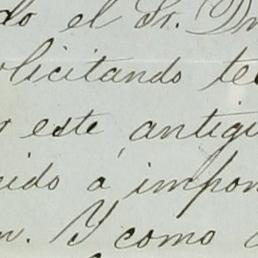 do el Sr. Dn
olicitando te
r este antigu
cido á impon
n. Y como